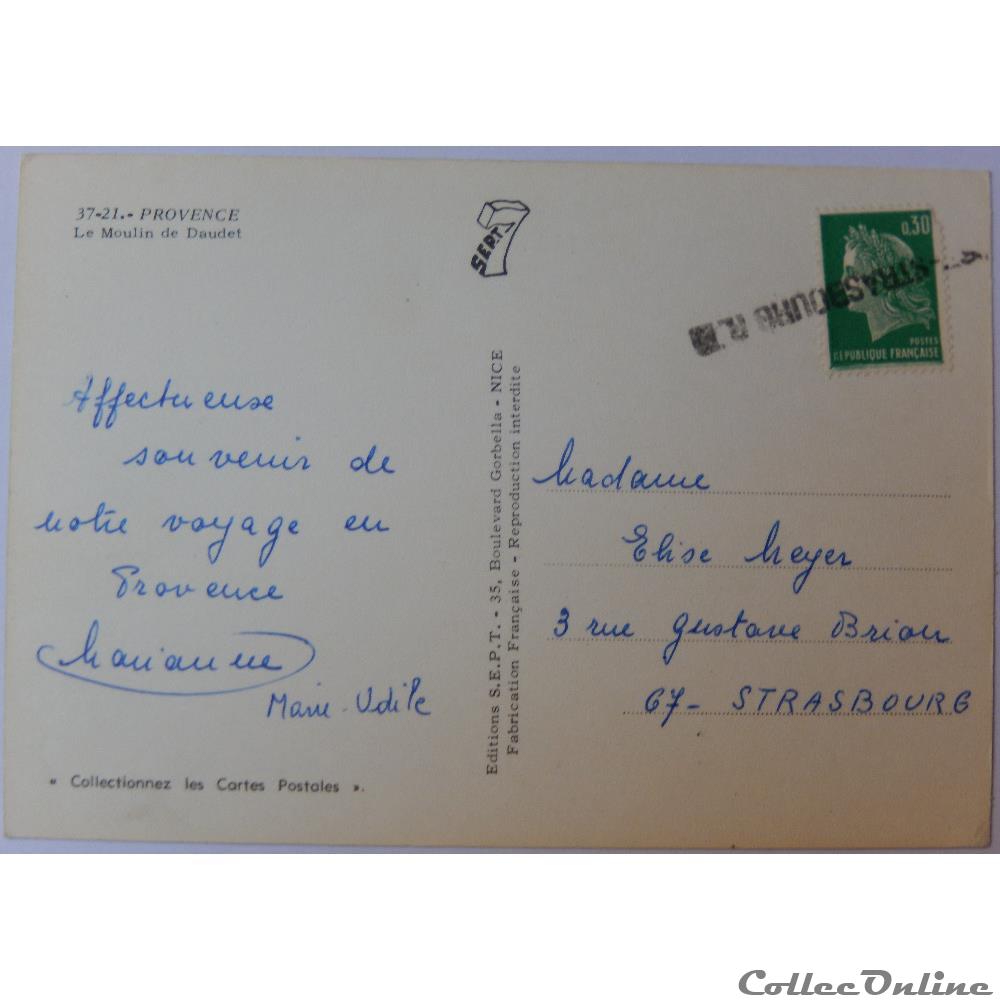 37-21.- PROVENCE
Le Moulin de Daudet
SEPT
7
0,30
POSTES
REPUBLIQUE FRANÇAISE
STRASBOURG R.
Affectueuse
souvenir de
notre voyage en
Provence
Marianne
Marie-Odile
« Collectionnez les Cartes Postales ».
Editions S.E.P.T. - 35, Boulevard Gorbella - NICE
Fabrication Française - Reproduction interdite
Madame
Elise Meyer
3 rue Gustave Brion
67- STRASBOURG
CollecOnline